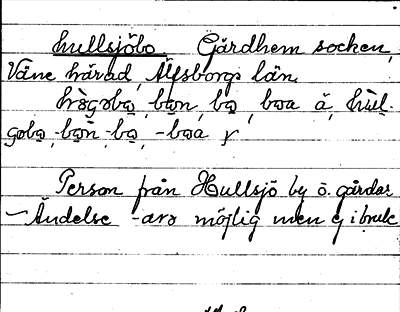 hullsjöbo Gärdhem socken,
Väne härad, Älfsborgs län.
bo̱n, bo̱, boa ä,
-bo̱n -bo̱, -boa
Person från Hullsjö by ö. gårdar
– Ändelse -arə möjlig men ej i bruk